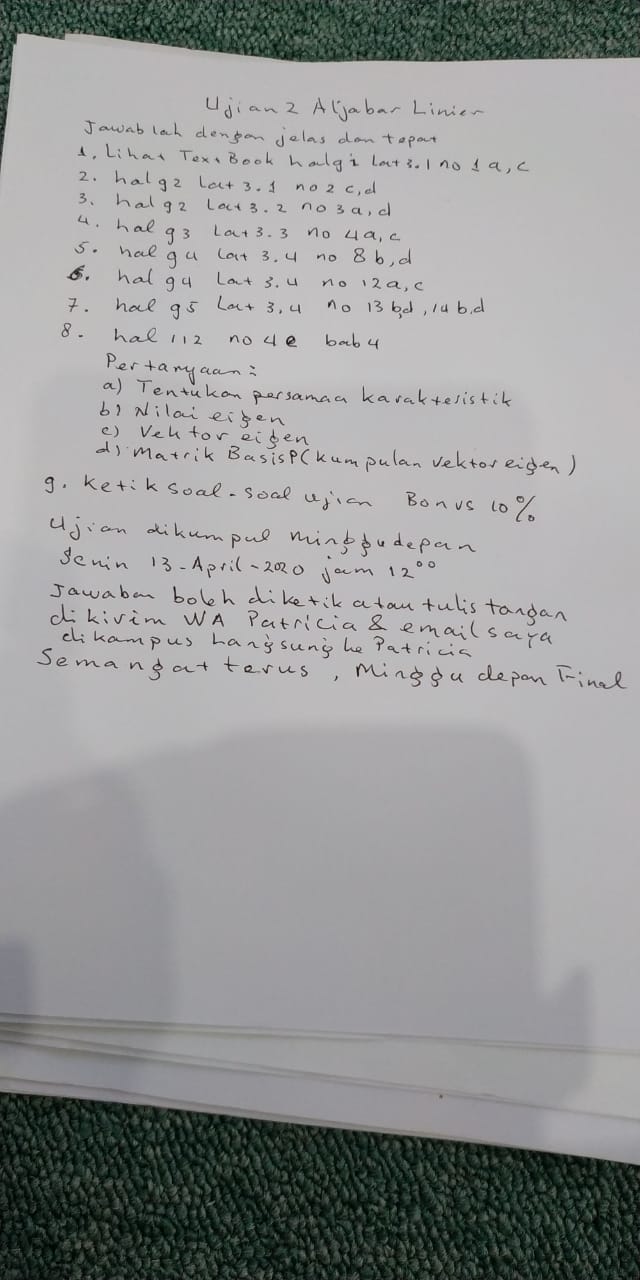 Ujian 2 Aljabar Linier
Jawablah dengan jelas dan tepat
1. Lihat Text Book hal 91 Lat 3.1 no 1 a, c
2. hal 92 Lat 3.1 no 2 c, d
3. hal 92 Lat 3.2 no 3 a, d
4. hal 93 Lat 3.3 no 4a, c
5. hal 94 Lat 3.4 no 8 b, d
6. hal 94 Lat 3.4 no 12 a, c
7. hal 95 Lat 3.4 no 13 b,d, 14 b.d
8. hal 112 no 4e bab 4
Pertanyaan:
a) Tentukan persamaa karakteristik
b) Nilai eigen
c) Vektor eigen
d) Matrik Basis P (kumpulan vektor eigen)
9. Ketik soal-soal ujian Bonus 10%
Ujian dikumpul minggu depan
Senin 13-April-2020 jam 12⁰⁰
Jawaban boleh diketik atau tulis tangan
dikirim WA Patricia & email saya
dikampus Langsung ke Patricia
Semangat terus, Minggu depan Final